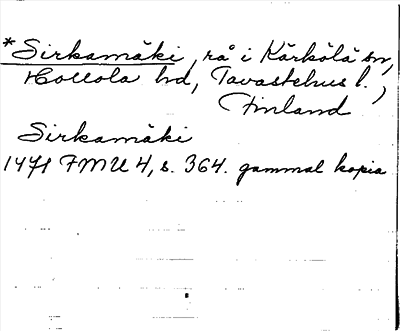 *Sirkamäki, rå i Kärkölä sn,
Hollola hd, Tavastehus l.,
Finland
Sirkamäki
1471 FMU 4, s. 364. gammal kopia